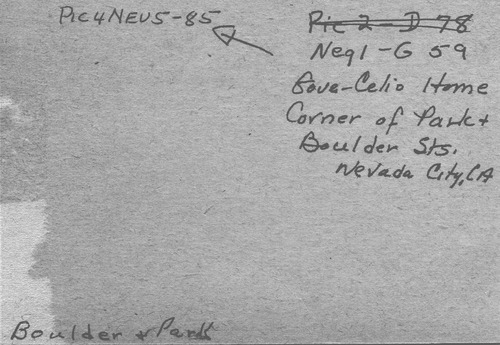 Pic4Nev5-85
Pic 2-D 78
Neg1-G 59
Gove-Celio Home
Corner of Park +
Boulder Sts.
Nevada City, CA
Boulder & Park